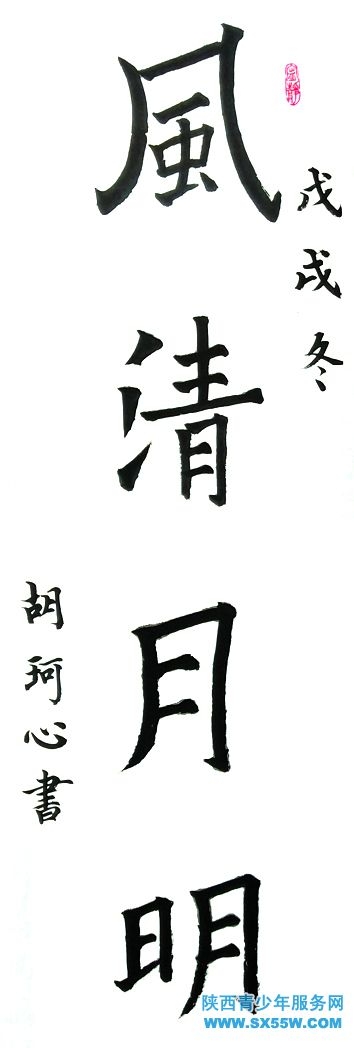 戊戌冬
風清月明
胡珂心書
陕西青少年服务网
www.sx55w.com